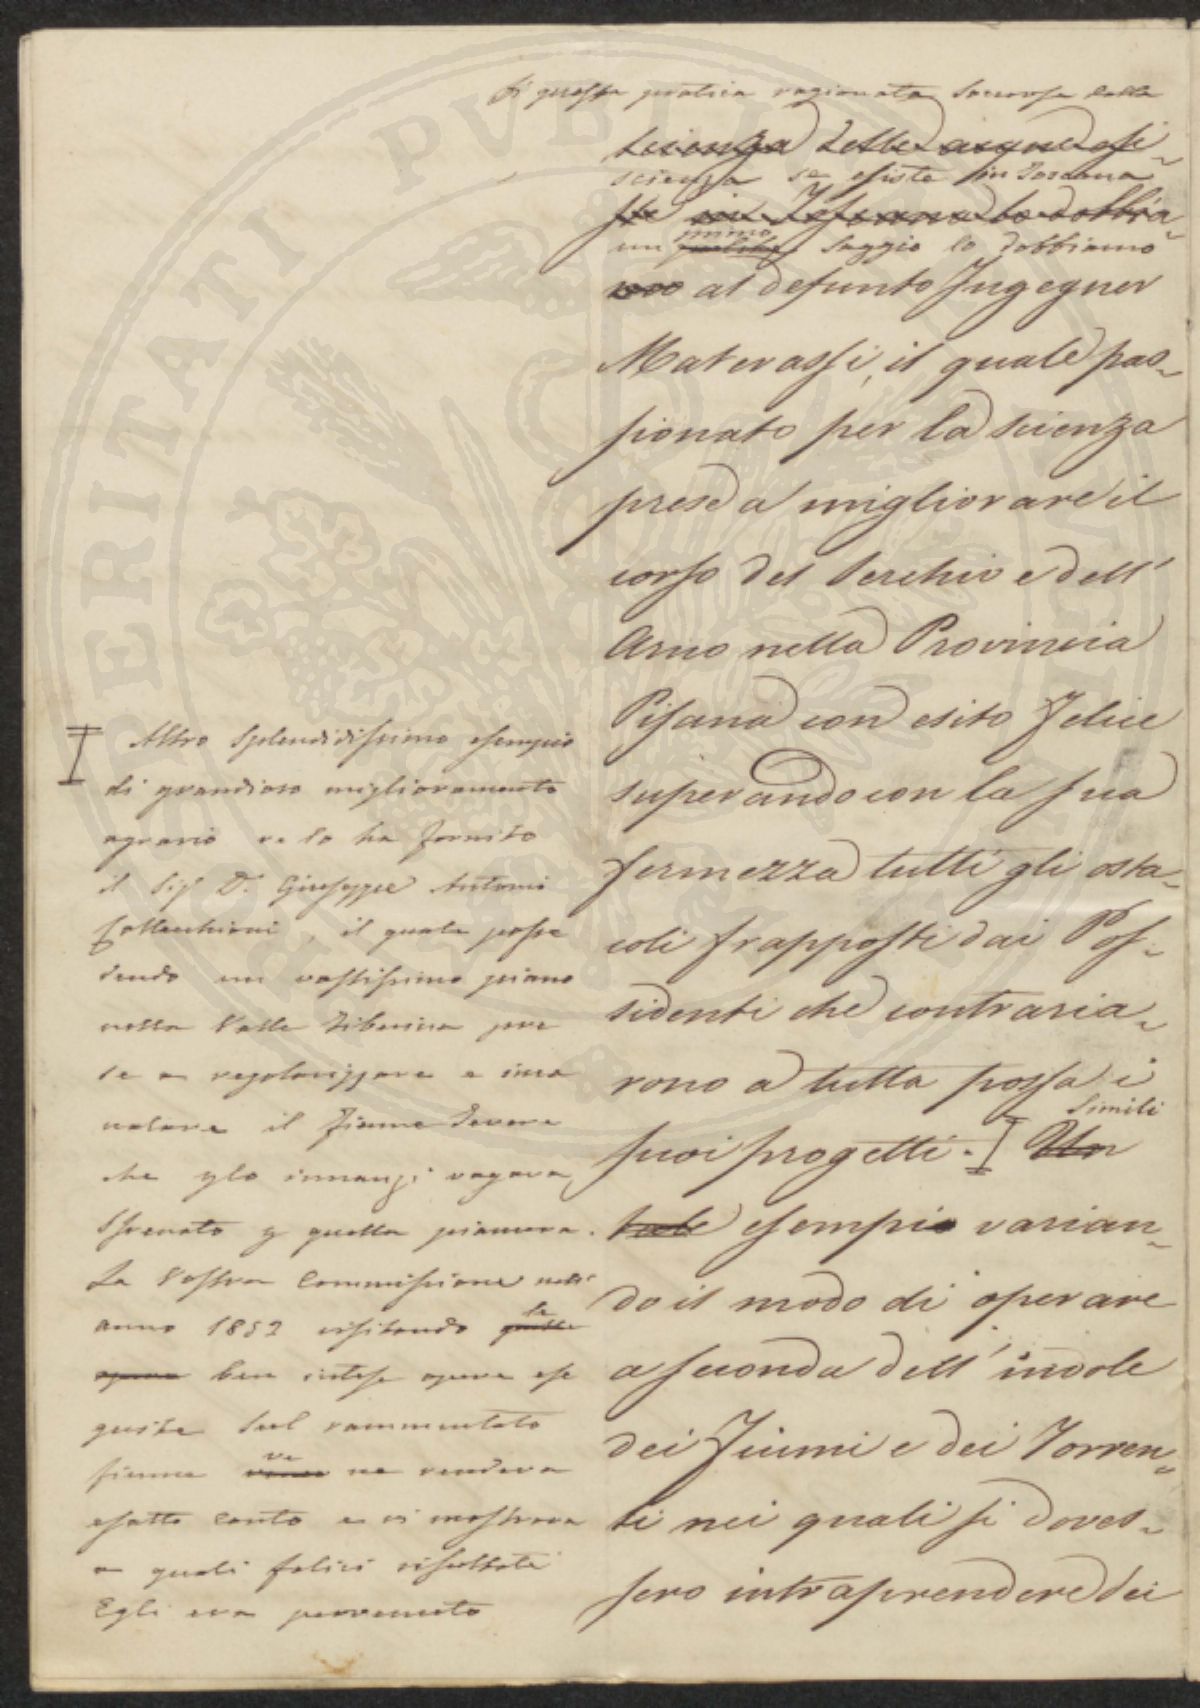 di questa pratica ragionata soccorsa dalla
scienza delle acque esi-
scienza se esiste in Toscana
ste in Toscana lo dobbia-
un primo saggio lo dobbiamo
mo al defunto Ingegner
Materassi, il quale pas-
sionato per la scienza
prese a migliorare il
corso del Serchio e dell'
Arno nella Provincia
Pisana con esito felice
superando con la sua
fermezza tutti gli osta-
coli frapposti dai Pos-
sidenti che contraria-
rono a tutta possa i
suoi progetti. Simili
Un
tale esempio varian-
do il modo di operare
a seconda dell'indole
dei Fiumi e dei Torren-
ti nei quali si doves-
sero intraprendere dei
Altro splendidissimo esempio
di grandioso miglioramento
agrario ve lo ha fornito
il Sig. D. Giuseppe Antonio
Collacchioni, il quale posse
dendo un vastissimo piano
nella Valle Tiberina pre
se a regolarizzare e inca
nalare il fiume Tevere
che plo innanzi vagava
sfrenato p quella pianura.
La Vostra Commissione nell'
anno 1852 visitando le quelle
opere ben intese opere ese
guite sul rammentato
fiume ve ne rendeva
esatto conto e vi mostrava
a quali felici resultati
Egli era pervenuto
PROSPERITATI PVBLICAE